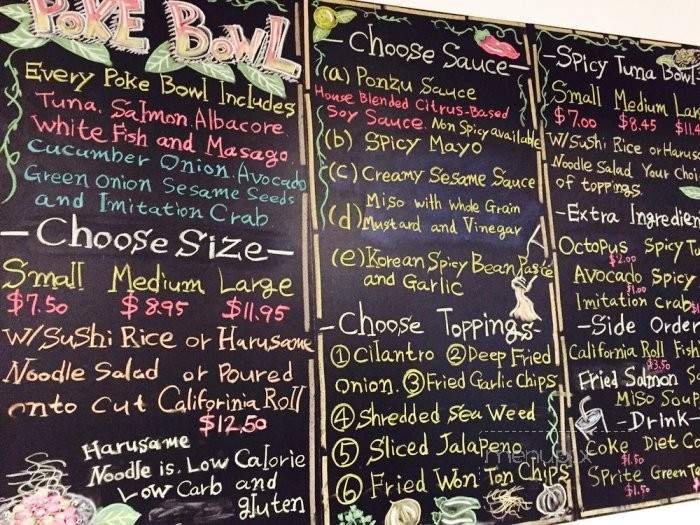 POKE BOWL
Every Poke Bowl Includes
Tuna. Salmon Albacore.
White Fish and Masago.
Cucumber Onion. Avocado
Green Onion Sesame Seeds
and Imitation Crab
- Choose Size -
Small Medium Large
$7.50 $8.95 $11.95
w/Sushi Rice or Harusame
Noodle Salad or Poured
onto Cut California Roll
$12.50
Harusame
Noodle is. Low Calorie
Low Carb and
gluten
- Choose Sauce -
(a) Ponzu Sauce
House Blended Citrus-Based
Soy Sauce. Non Spicy available
(b) Spicy Mayo
(c) Creamy Sesame Sauce
(d) Miso with Whole Grain
Mustard and Vinegar
(e) Korean Spicy Bean Paste
and Garlic
- Choose Toppings -
① Cilantro ② Deep Fried
Onion. ③ Fried Garlic Chips
④ Shredded Sea Weed
⑤ Sliced Jalapeno
⑥ Fried Won Ton Chips
menupix
- Spicy Tuna Bowl
Small Medium
$7.00 $8.45
W/Sushi Rice or
Noodle Salad Your
of toppings.
- Extra
Octopus Spicy
$2.00
Avocado Spicy
$1.00
Imitation Crab
- Side
California Roll
$3.50
Fried Salmon
Miso Soup
- Drink
Coke Diet
$1.50
Sprite Green
$1.50